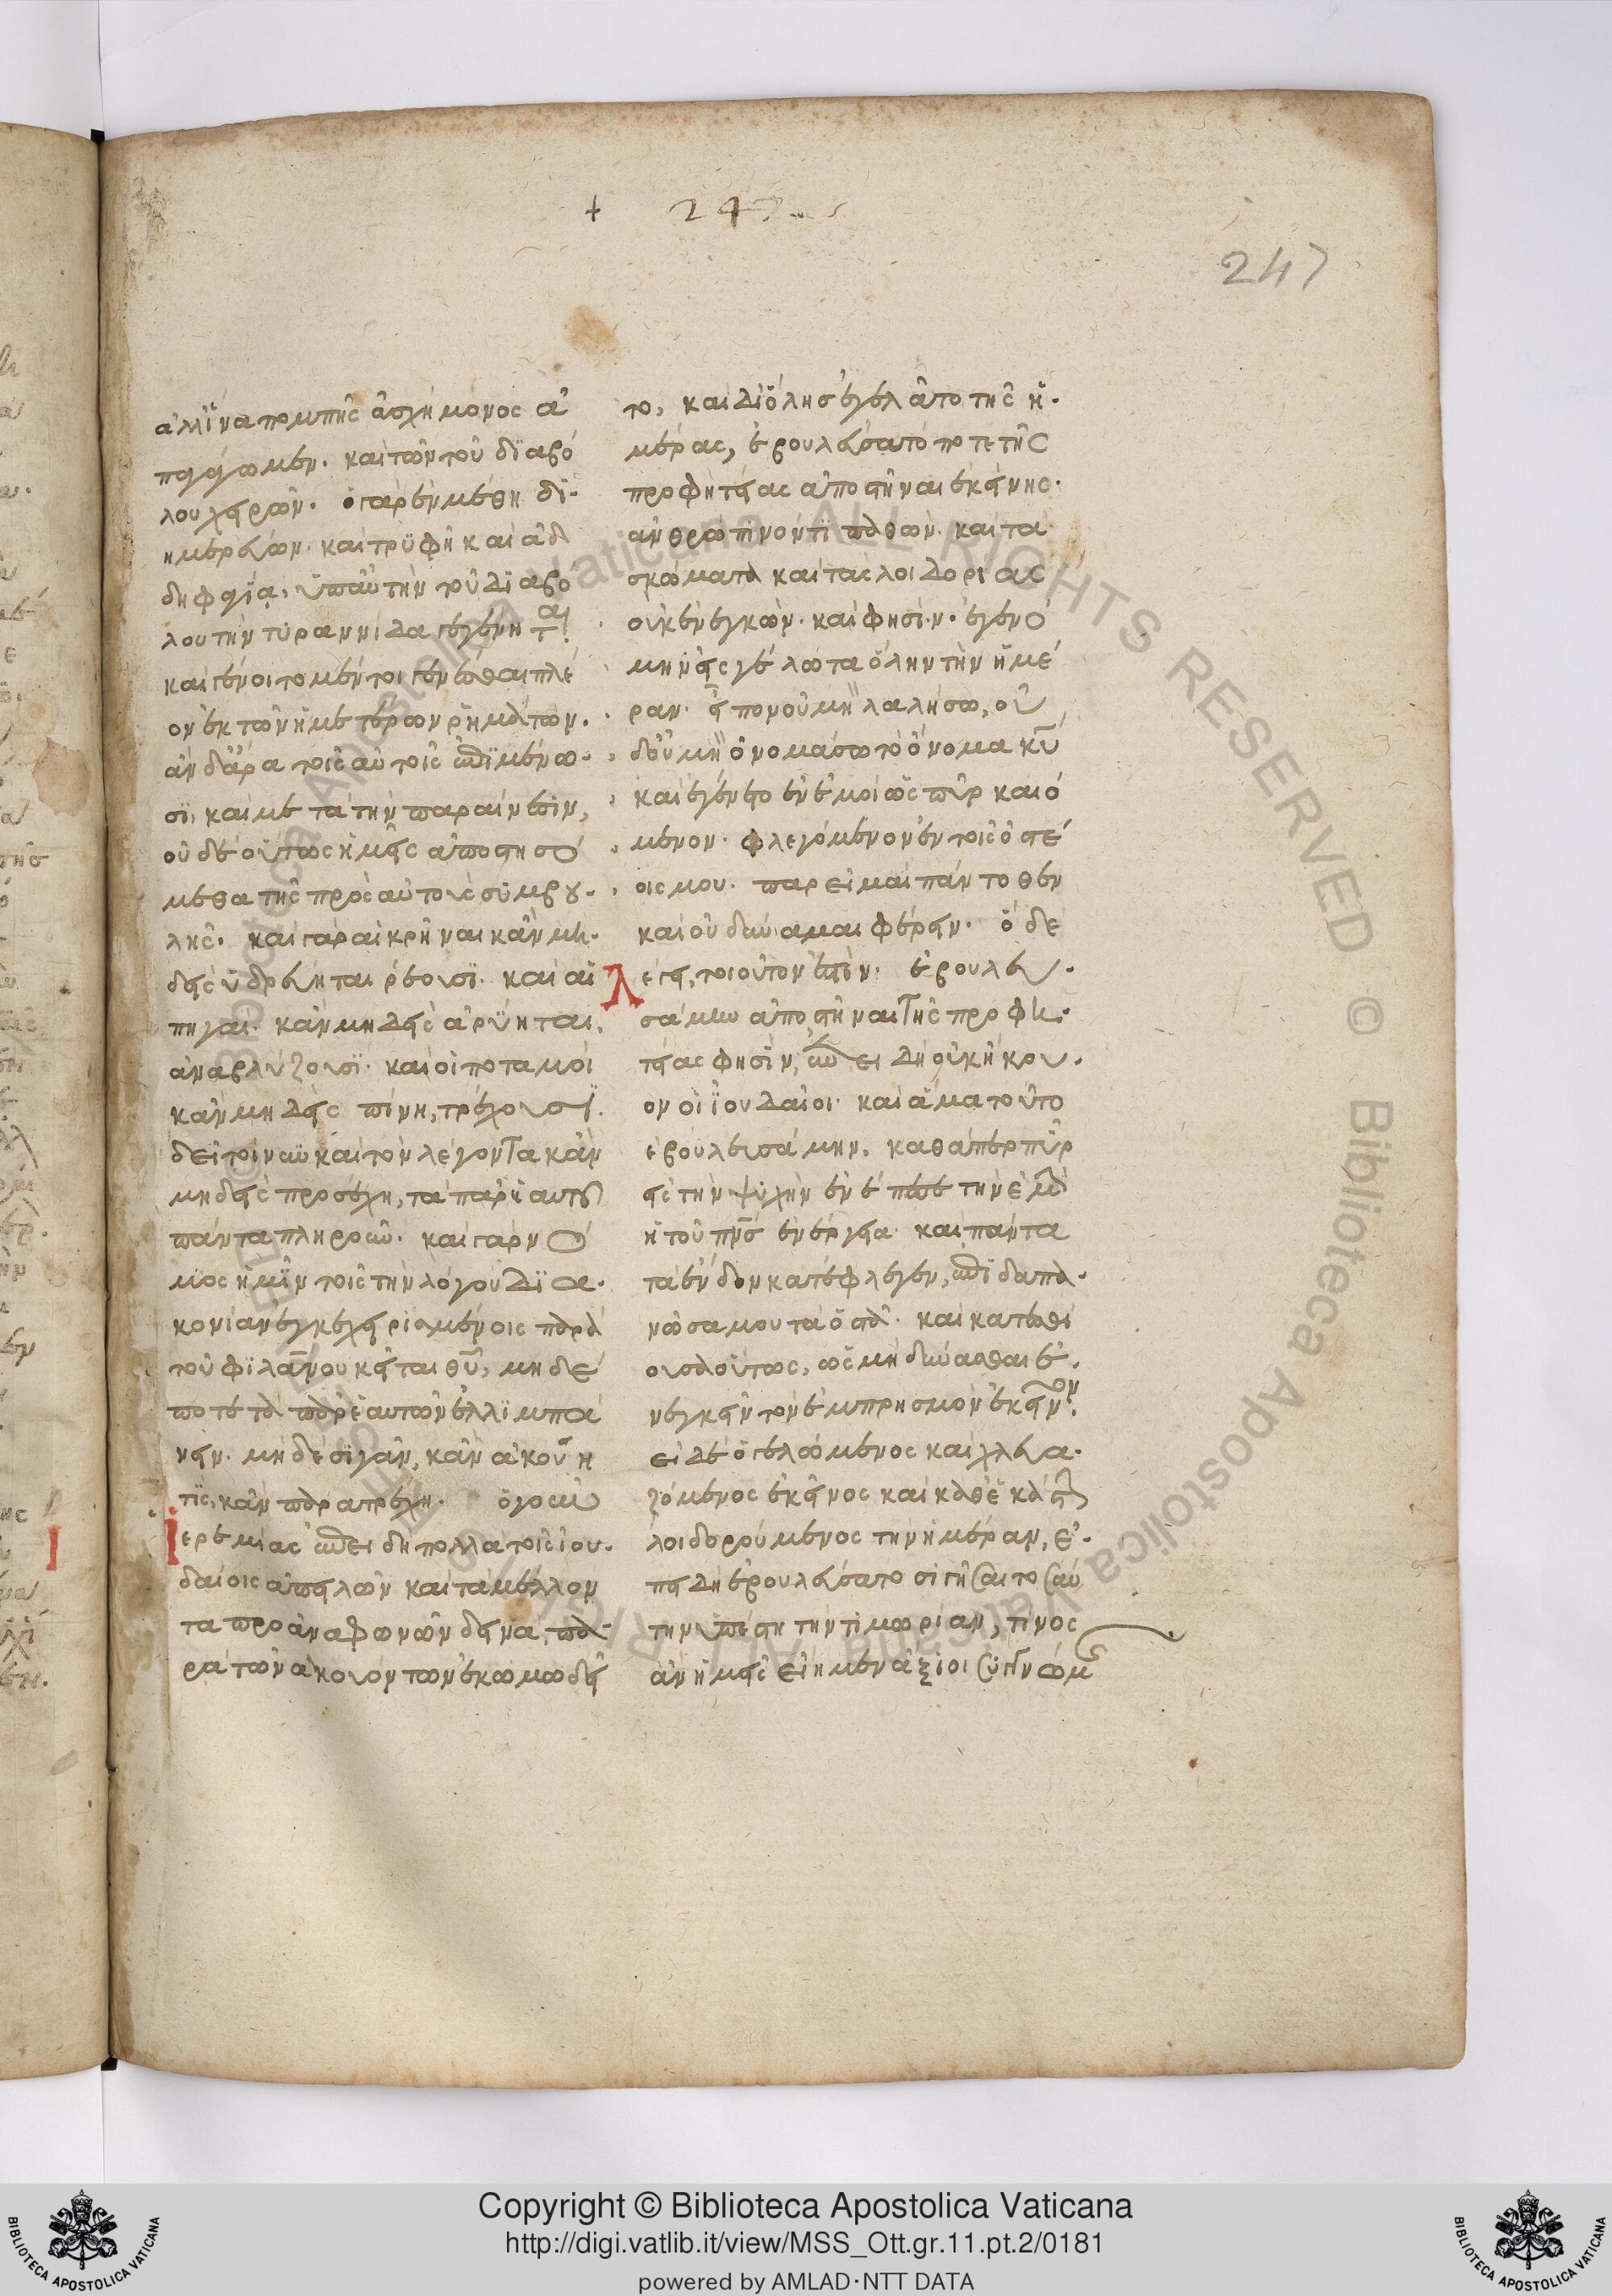 + 247
247
ἀλλ' ἵνα πομπῆς ἀσχήμονος ἀ
παγάγωμεν. καὶ τῶν τοῦ διαβό
λου χειρῶν. ὃ γὰρ ἐν μέθη δϊ
ημερεύων. καὶ τρϋφῆ καὶ ἀδ
δηφαγία. ϋπ' αὐτὴν τοῦ διαβό
λου τὴν τϋραννίδα γεγένηται.
καὶ γένοιτο μέν τι γενέσθαι πλέ
ον ἐκ τῶν ἡμετέρων ρημάτων.
ἂν δ' ἄρα τοῖς αὐτοῖς ἐπϊμένω
σϊ. καὶ μετὰ τὴν παραίνεσϊν,
οὐδὲ οὕτως ἡμεῖς ἀποστησό
μεθα τῆς πρὸς αὐτοὺς συμβου
λῆς. καὶ γὰρ αἱ κρῆναι κἂν μη
δεὶς ὑδρεύηται ρέουσϊ. καὶ αἱ
πηγαὶ κἂν μηδεὶς ἀρύηται,
ἀναβλύζουσϊ. καὶ οἱ ποταμοὶ
κἂν μηδεὶς πίνη, τρέχουσϊ.
δεῖ τοίνυν καὶ τὸν λέγοντα κἂν
μηδεὶς προσέχη, τὰ παρ' ἑαυτοῦ
πάντα πληροῦν. καὶ γὰρ νό
μος ἡμῖν τοῖς τὴν λόγου δϊα
κονίαν ἐγκεχειρισμένοις παρὰ
τοῦ φϊλανου κεῖται θῦ, μηδέ
ποτε τὰ παρ' ἑαυτῶν ἐλλϊμπά
νειν. μηδὲ σϊγᾶν, κἂν ἀκούη
τϊς, κἂν παρατρέχη. ὁ γοῦν
ἱερεμίας ἐπειδὴ πολλὰ τοῖς ἰου
δαίοις ἀπειλῶν καὶ τὰ μέλλον
τα προαναφωνῶν δεινὰ, πα
ρὰ τῶν ἀκουόντων ἐκωμωδεῖ
το, καὶ δϊόλης ἐγελᾶτο τῆς ἡ
μέρας, ἐβουλεύσατό ποτε τῆς
προφητείας ἀποστῆναι ἐκείνης.
ἀνθρώπϊνόν τϊ παθὼν. καὶ τὰ
σκώματα καὶ τὰς λοιδορίας
οὐκ ἐνεγκὼν. καὶ φησὶν. ἐγενό
μην εἰς γέλωτα ὅλην τὴν ἡμέ
ραν. εἶπον οὐ μὴ λαλήσω, οὐ
δ' οὐ μὴ ὀνομάσω τὸ ὄνομα κῦ
καὶ ἐγένετο ἐν ἐμοὶ ὡς πῦρ καιό
μενον. φλεγόμενον ἐν τοῖς ὀστέ
οις μου. παρεῖμαι πάντοθεν
καὶ οὐ δύναμαι φέρειν. ὃ δὲ
λέγει, τοιοῦτον ἐστὶν. ἐβουλευ
σάμην ἀποστῆναι τῆς προφη
τείας φησὶν, ἐπειδὴ οὐκ ἤκου
ον οἱ ἰουδαῖοι. καὶ ἅμα τοῦτο
ἐβουλευσάμην. καθάπερ πῦρ
εἰς τὴν ψϋχὴν ἐνέπεσε τὴν ἐμὴν
ἡ τοῦ πνς ἐνέργεια. καὶ πάντα
τὰ ἔνδον κατέφλεγεν, ἐπϊδαπα
νῶσα μου τὰ ὀστᾶ. καὶ κατεσθί
ουσα οὕτως, ὡς μὴ δύνασθαι ἐ
νεγκεῖν τὸν ἐμπρησμὸν ἐκεῖνον.
εἰ δὲ ὁ γελώμενος καὶ χλευα
ζόμενος ἐκεῖνος καὶ καθ' ἑκάστην
λοιδορούμενος τὴν ἡμέραν, ἐ
πειδὴ ἐβουλεύσατο σιγῆσαι τοσαύ
την ὑπέστη τὴν τϊμωρίαν, τίνος
ἂν ἡμεῖς εἴημεν ἄξϊοι συγγνώμης
Copyright © Biblioteca Apostolica Vaticana
http://digi.vatlib.it/view/MSS_Ott.gr.11.pt.2/0181
powered by AMLAD·NTT DATA
BIBLIOTECA APOSTOLICA VATICANA
BIBLIOTECA APOSTOLICA VATICANA